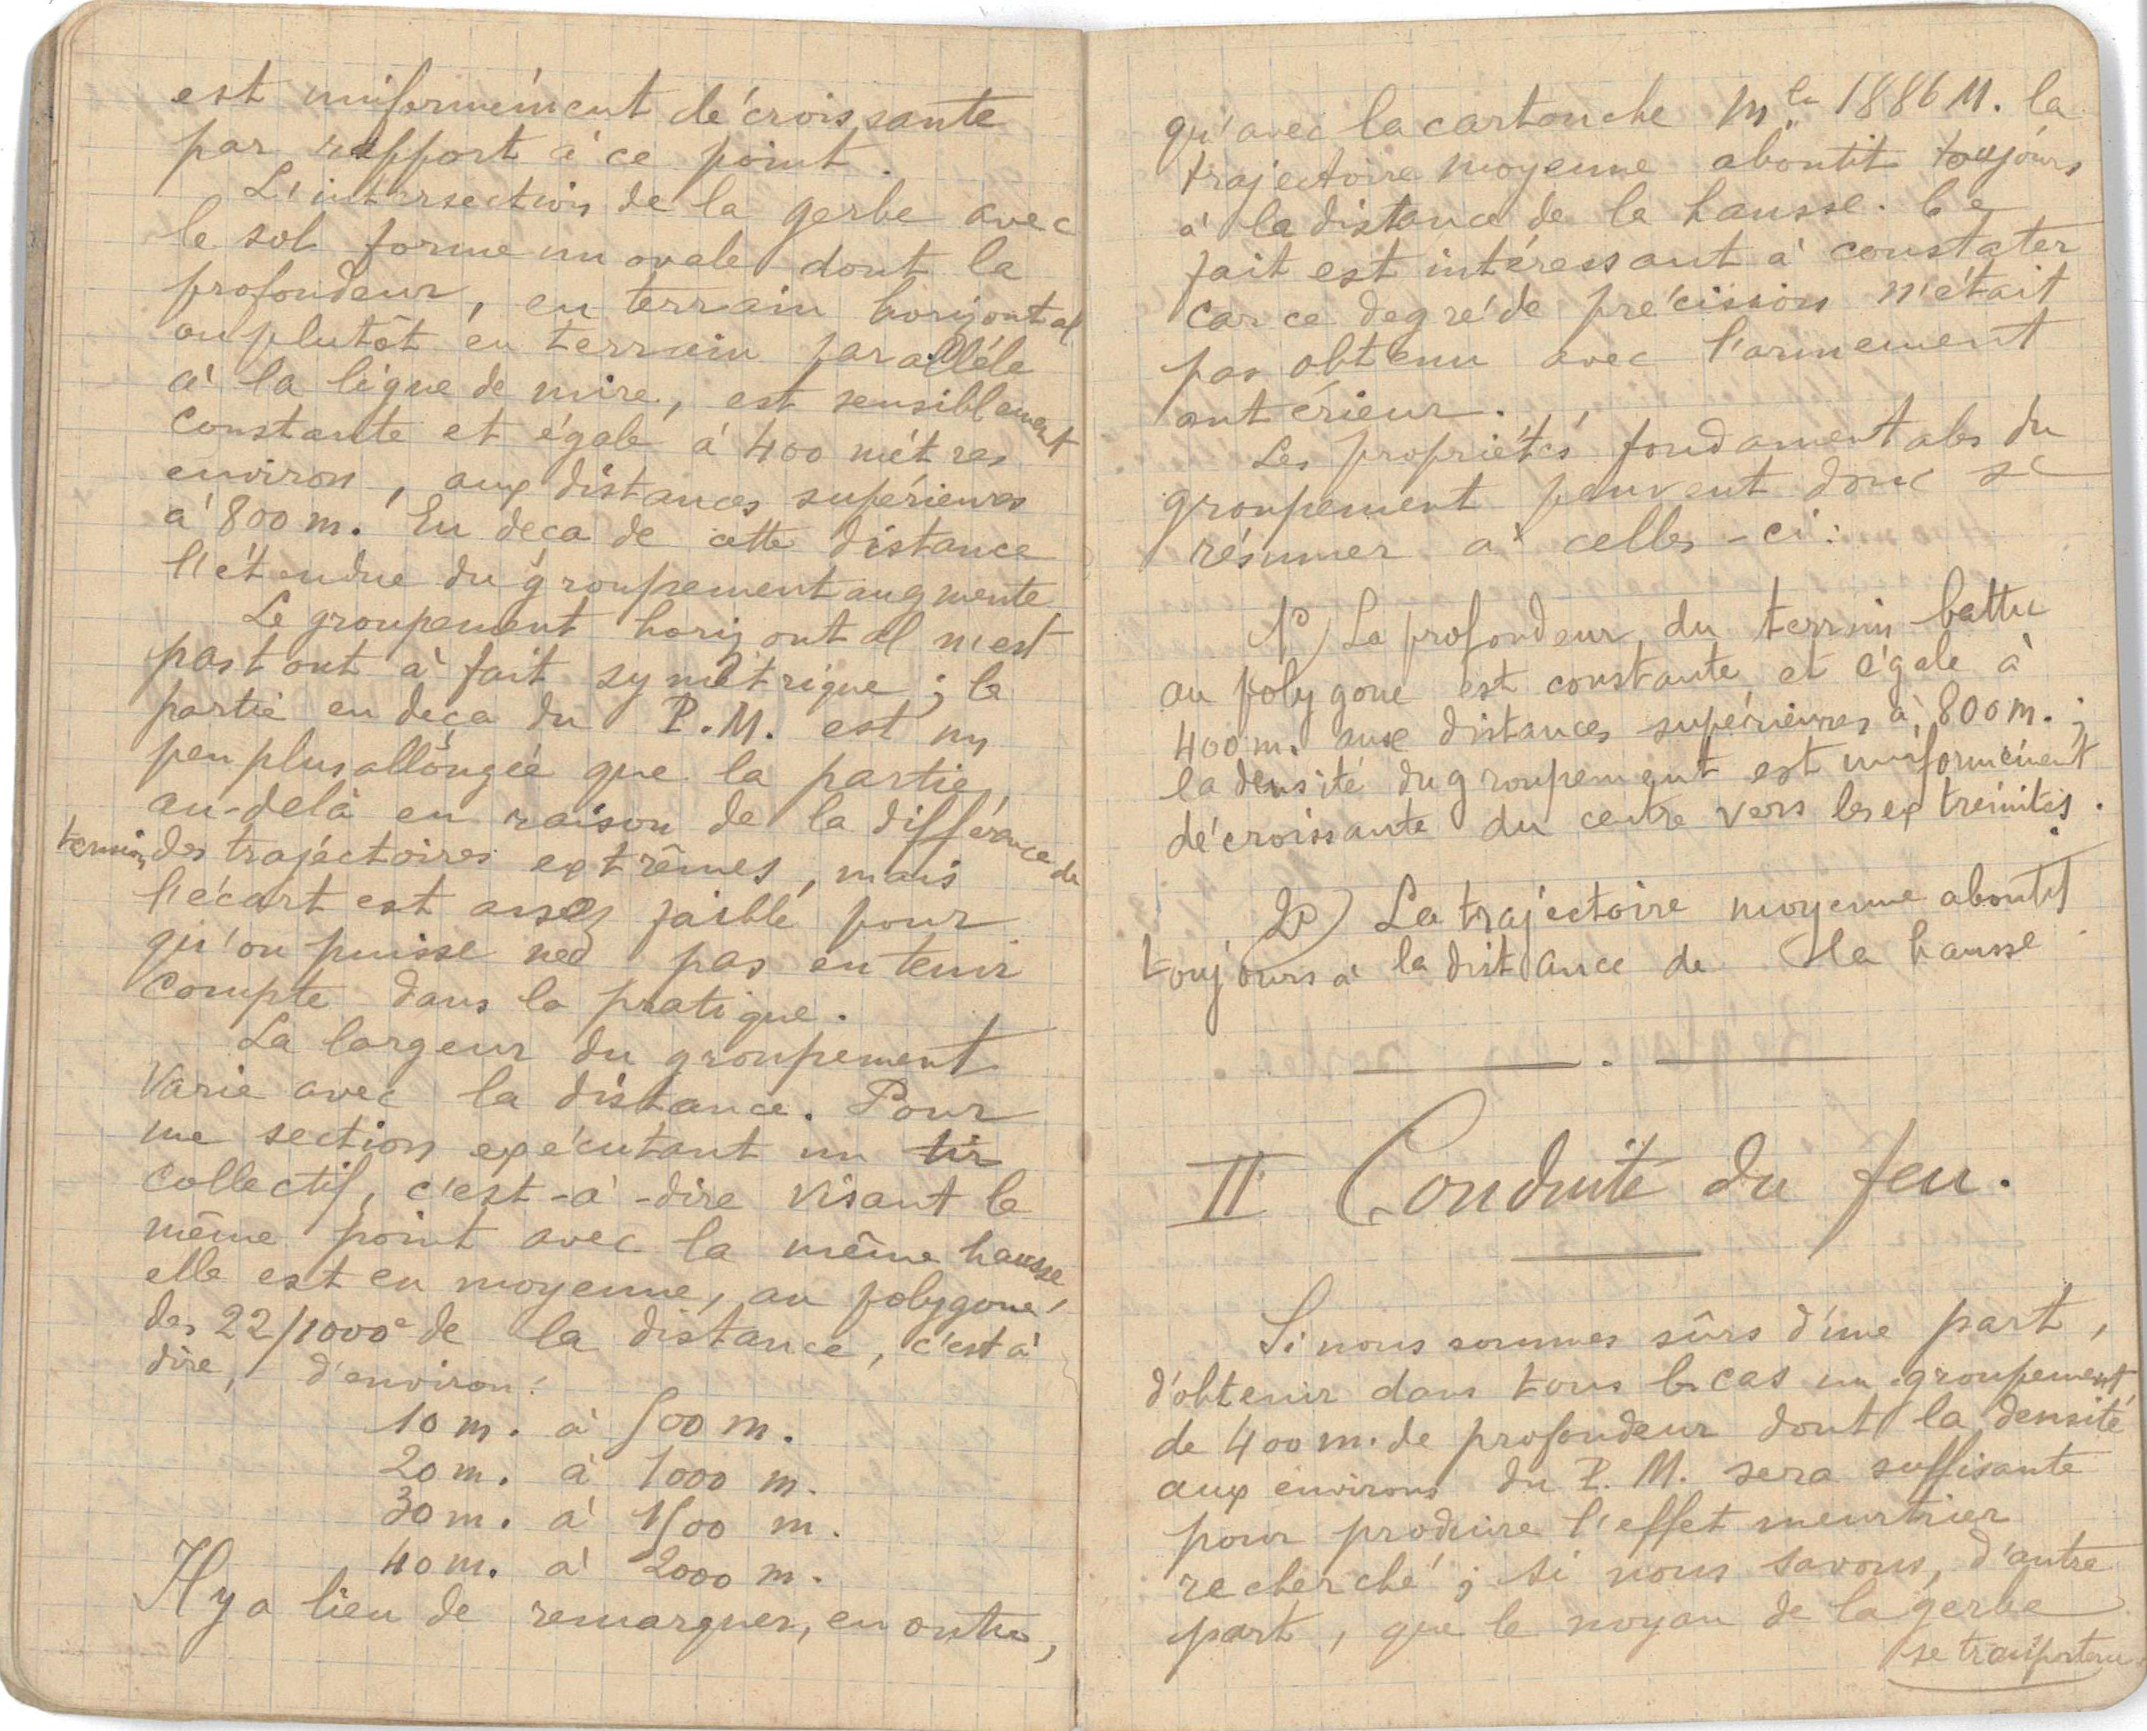 est uniformément décroissante
par rapport à ce point.
L'intersection de la gerbe avec
le sol forme un ovale dont la
profondeur, en terrain horizontal
ou plutôt en terrain parallèle
à la ligne de mire, est sensiblement
constante et égale à 400 mètres
environ, aux distances supérieures
à 800 m. En deça de cette distance
l'étendue du groupement augmente
Le groupement horizontal n'est
pas tout à fait symétrique ; la
partie en deça du P.M. est un
peu plus allongée que la partie
au-delà en raison de la différence de
tension des trajectoires extrêmes, mais
l'écart est assez faible pour
qu'on puisse ne pas en tenir
compte dans la pratique.
La largeur du groupement
varie avec la distance. Pour
une section exécutant un tir
collectif, c'est-à-dire visant le
même point avec la même hausse,
elle est en moyenne, au polygone,
des 22/1000e de la distance, c'est à
dire, d'environ :
10 m. à 500 m.
20 m. à 1000 m.
30 m. à 1500 m.
40 m. à 2000 m.
Il y a lieu de remarquer, en outre,
qu'avec la cartouche Mle 1886 M. la
trajectoire moyenne aboutit toujours
à la distance de la hausse. Ce
fait est intéressant à constater
car ce degré de précision n'était
pas obtenu avec l'armement
antérieur.
Les propriétés fondamentales du
groupement peuvent donc se
résumer à celles-ci :
1°) La profondeur du terrain battu
au polygone est constante et égale à
400 m. aux distances supérieures à 800 m. ;
la densité du groupement est uniformément
décroissante du centre vers les extrémités.
2°) La trajectoire moyenne aboutit
toujours à la distance de la hausse
II Conduite du feu.
Si nous sommes sûrs d'une part,
d'obtenir dans tous les cas un groupement
de 400 m. de profondeur dont la densité
aux environs du P.M. sera suffisante
pour produire l'effet meurtrier
recherché ; si nous savons, d'autre
part, que le noyau de la gerbe
se transportera